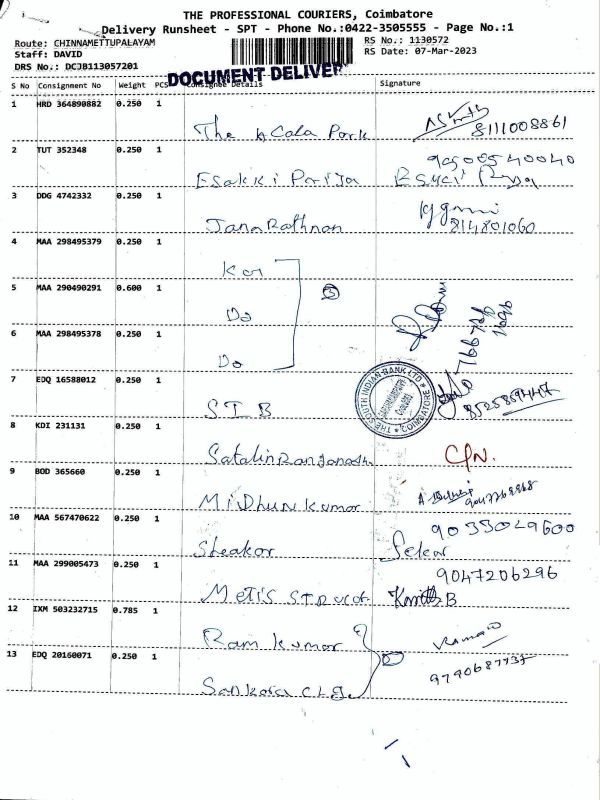 THE PROFESSIONAL COURIERS, Coimbatore
Delivery Runsheet - SPT - Phone No.:0422-3505555 - Page No.:1
Route: CHINNAMETTUPALAYAM RS No.: 1130572
Staff: DAVID RS Date: 07-Mar-2023
DRS No.: DCJB113057201
DOCUMENT DELIVER
S No Consignment No Weight PCS Consignee Details Signature
1 HRD 364890882 0.250 1
The Park 8111008861
2 TUT 352348 0.250 1
Esakki Pariya
3 DDG 4742332 0.250 1
Jana Rathnan 814801060
4 MAA 298495379 0.250 1
5 MAA 290490291 0.600 1
Do
6 MAA 298495378 0.250 1
Do
7 EDQ 16588012 0.250 1
SIB
THE SOUTH INDIAN BANK LTD
COIMBATORE
8 KDI 231131 0.250 1
9 BOD 365660 0.250 1
Midhun kumar
10 MAA 567470622 0.250 1
Sheakar Sekar
11 MAA 299005473 0.250 1 9047206296
Metis
12 IXM 503232715 0.785 1
Ram kumar
13 EDQ 20160071 0.250 1
Sankara